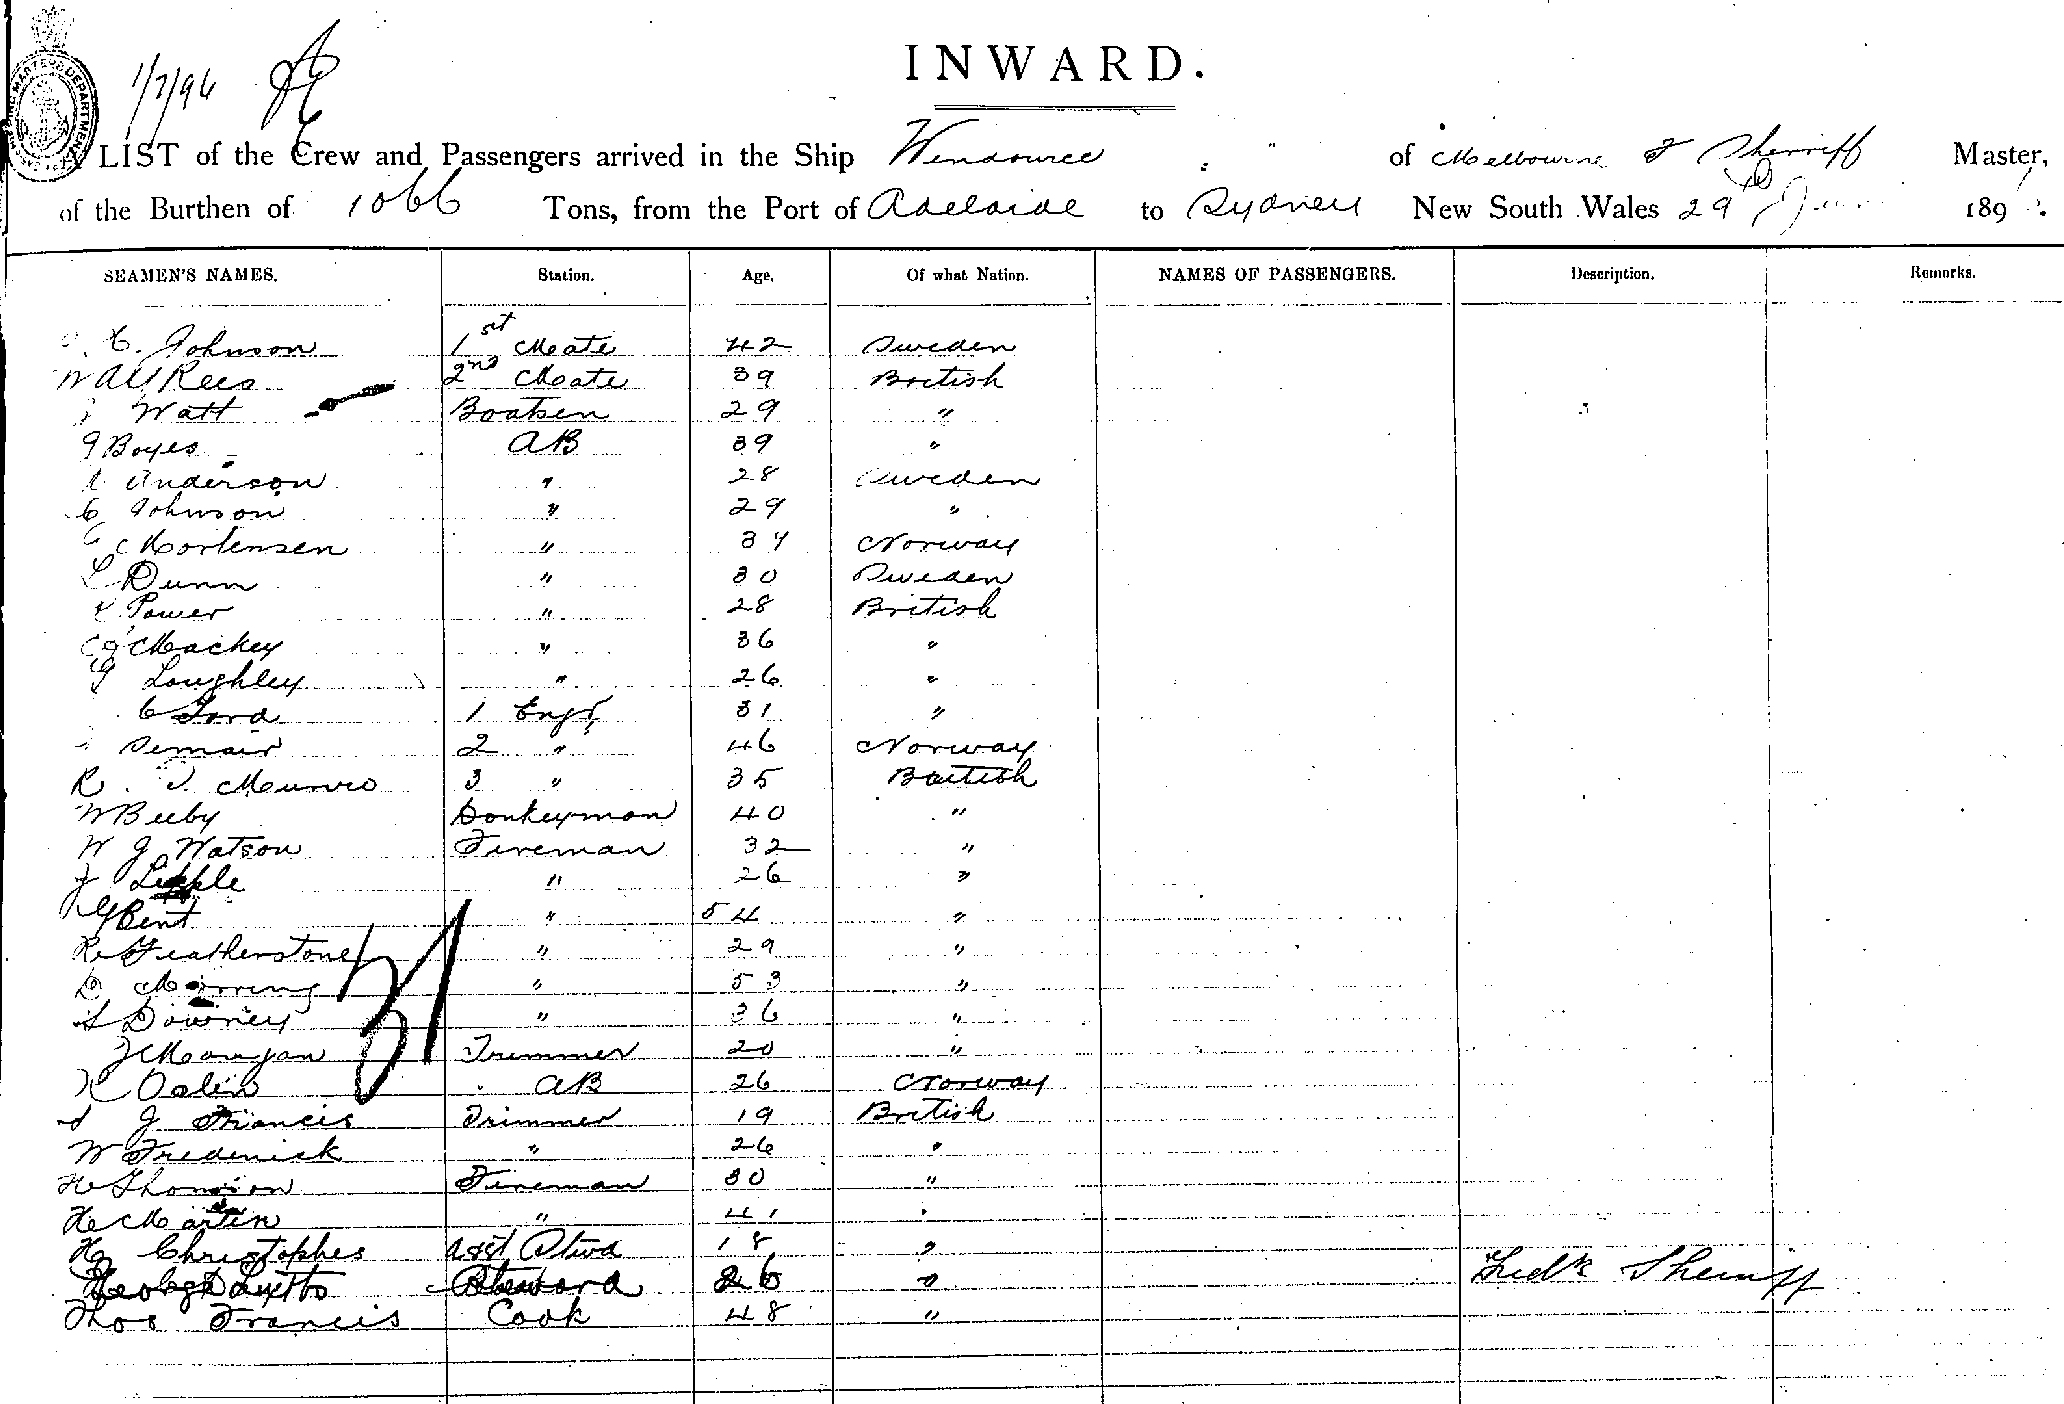 1/7/96
INWARD.
A LIST of the Crew and Passengers arrived in the Ship Wendouree " of Melbourne F Sherriff Master,
of the Burthen of 1066 Tons, from the Port of Adelaide to Sydney New South Wales 29 June 189
SEAMEN'S NAMES. Station. Age. Of what Nation. NAMES OF PASSENGERS. Description. Remarks.
C. Johnson 1st Mate 42 Sweden
Rees 2nd Mate 39 British
Watt Boatsen 29 "
G Boyes AB 39 "
Anderson " 28 Sweden
C Johnson " 29 "
Mortensen " 34 Norway
L Dunn " 30 Sweden
Power " 28 British
Mackey " 36 "
G Loughley " 26 "
C Ford 1 Engr 31 "
2 " 46 Norway
R. Munro 3 " 35 British
W Beeby Donkeyman 40 "
W J Watson Fireman 32 "
J " 26 "
Bent " 54 "
R Featherstone " 29 "
D " 53 "
Downey " 36 "
J Mangan Trimmer 20 "
Oslin AB 26 Norway
J Francis Trimmer 19 British
W Frederick " 26 "
H Thomson Fireman 30 "
H Martin " 41 "
H Christophes asst Stwd 18 "
Steward 26 " Fredk Sherriff
Thos Francis Cook 48 "
31